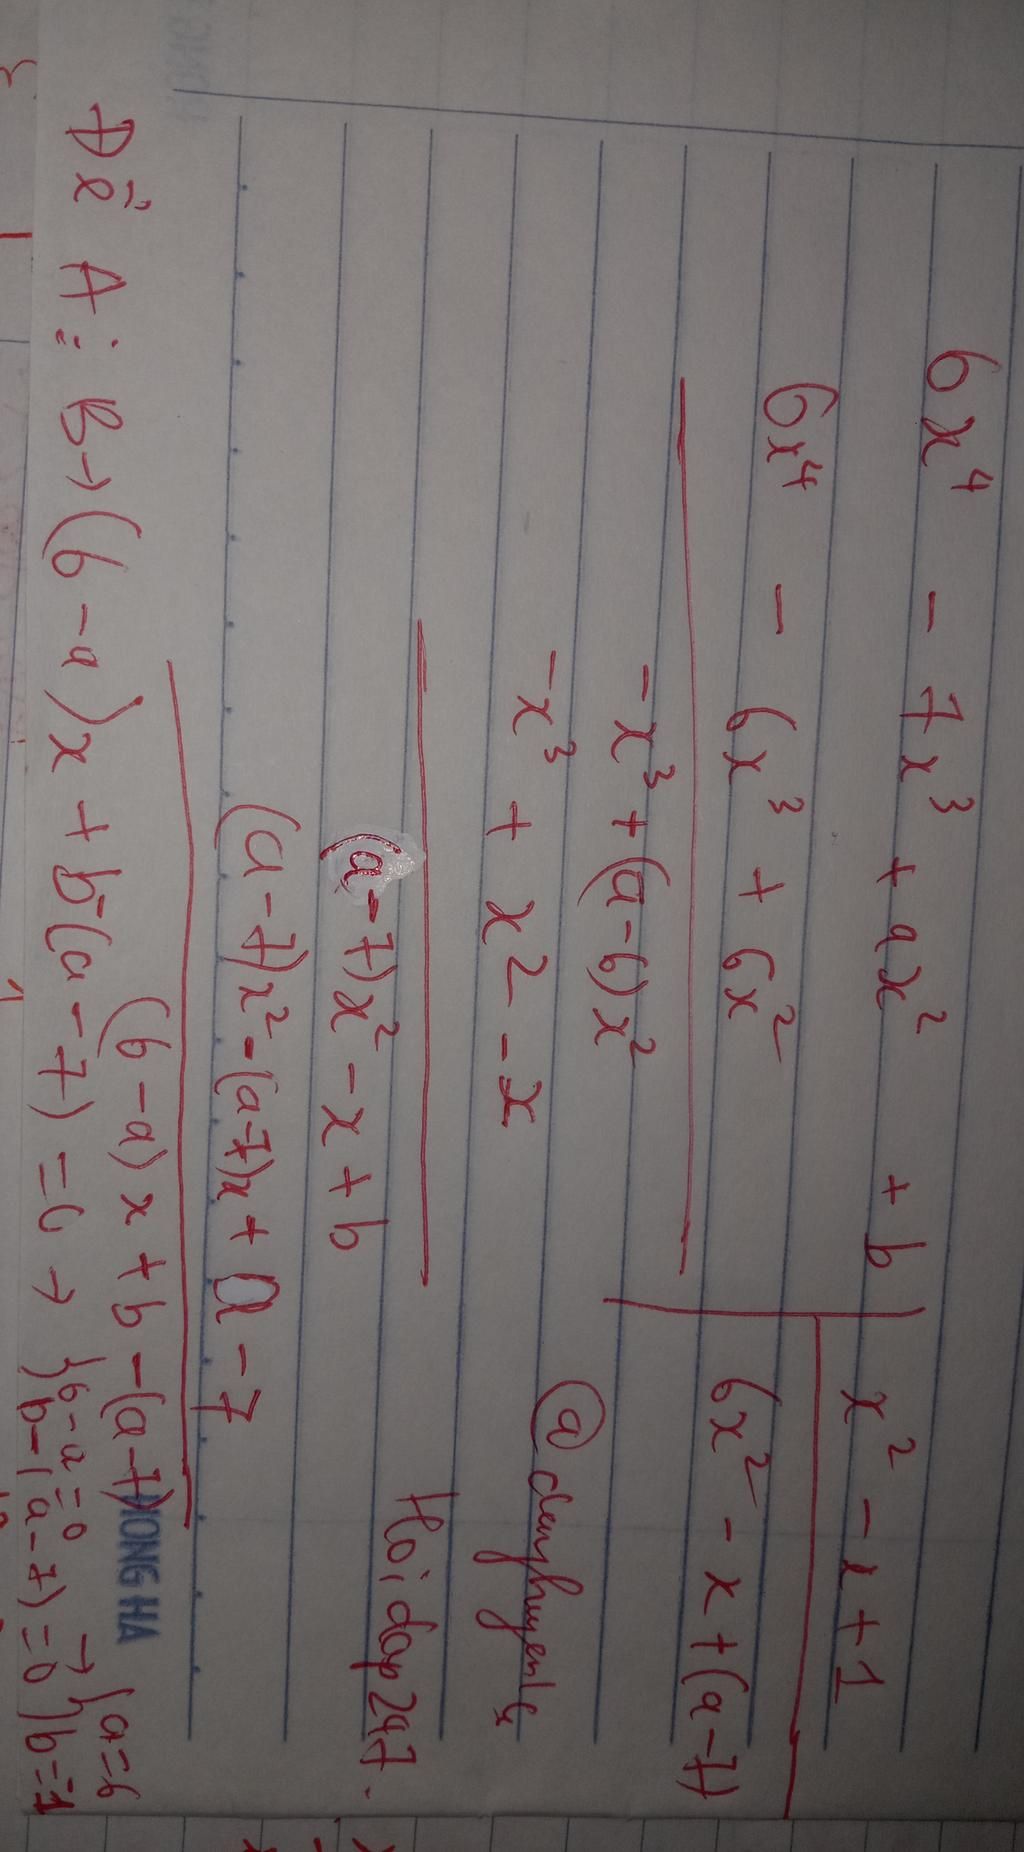 6x⁴ - 7x³ + ax² + b | x² - x + 1
6x⁴ - 6x³ + 6x² | 6x² - x + (a-7)
-x³ + (a-6)x²
-x³ + x² - x
(a-7)x² - x + b
(a-7)x² - (a-7)x + a - 7
(6-a)x + b - (a-7)
Để A ⋮ B → (6-a)x + b-(a-7) = 0 → { 6-a=0 b-(a-7)=0 → { a=6 b=-1
Hoidap247.
HONG HA